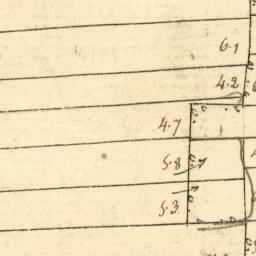 6.1
4.2
4.7
5.8
5.3